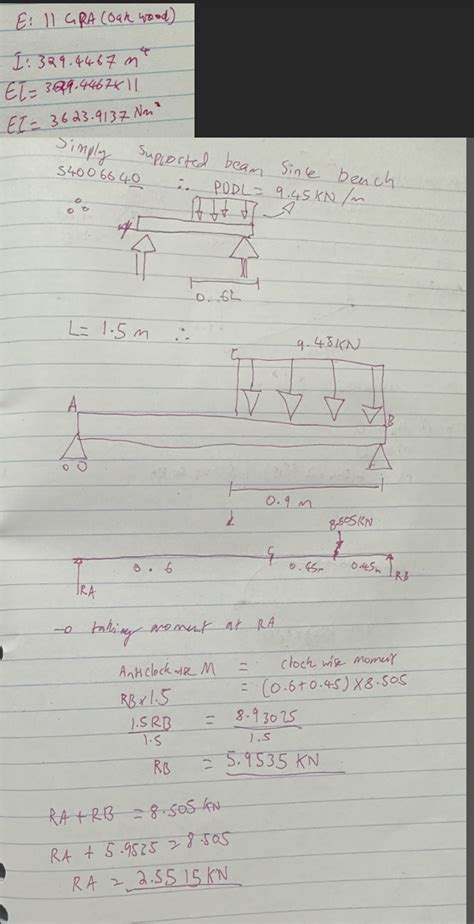 E: 11 GPA (Oak wood)
I: 329.4467 m⁴
EI = 329.4467x11
EI = 3623.9137 Nm²
Simply supported beam since bench
S4006640 ∴ PODL = 9.45KN/m
0.6L
L = 1.5m ∴
9.45KN
C
A
B
0.9 m
8.505KN
0.6
C
0.45m
0.45m
RA
RB
→ taking moment at RA
Anticlockwise M = clockwise moment
RB x 1.5 = (0.6+0.45) x 8.505
1.5RB = 8.93025
1.5 1.5
RB = 5.9535 KN
RA + RB = 8.505KN
RA + 5.9535 = 8.505
RA = 2.5515KN